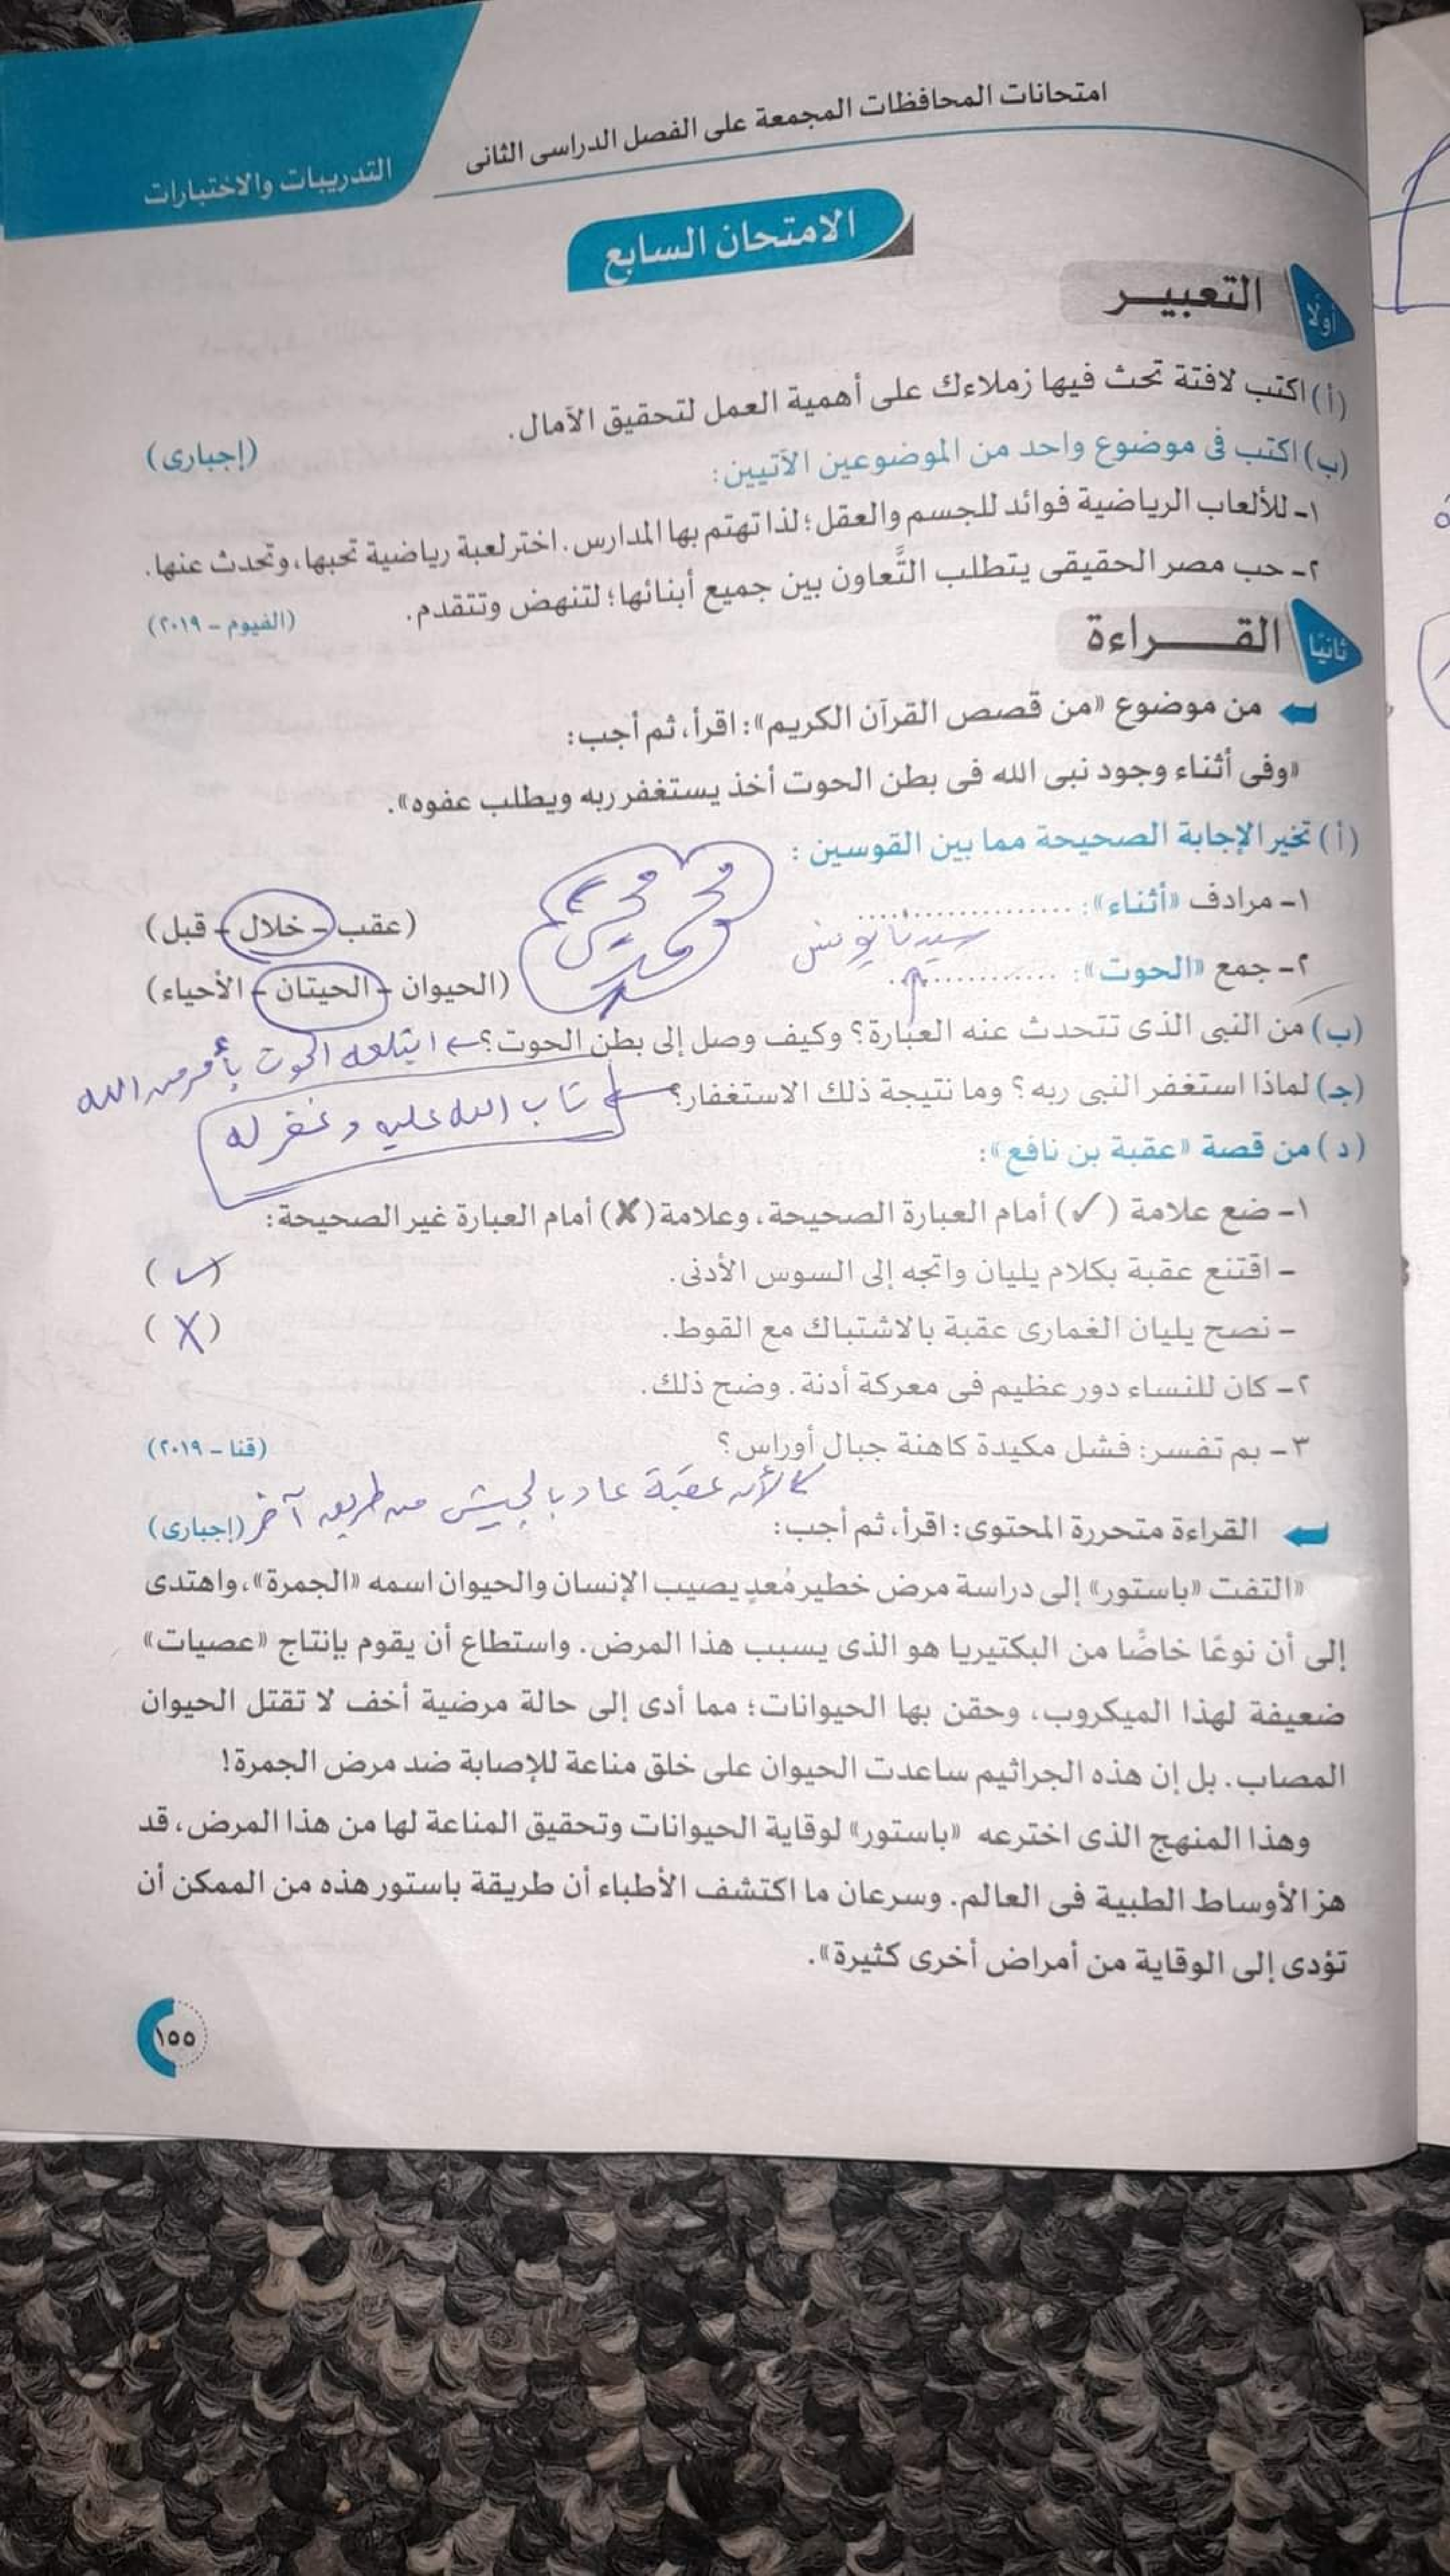 امتحانات المحافظات المجمعة على الفصل الدراسى الثانى
التدريبات والاختبارات
الامتحان السابع
أولًا التعبيــر
(أ) اكتب لافتة تحث فيها زملاءك على أهمية العمل لتحقيق الآمال.
(ب) اكتب فى موضوع واحد من الموضوعين الآتيين: (إجبارى)
١- للألعاب الرياضية فوائد للجسم والعقل؛ لذا تهتم بها المدارس. اختر لعبة رياضية تحبها، وتحدث عنها.
٢- حب مصر الحقيقى يتطلب التَّعاون بين جميع أبنائها؛ لتنهض وتتقدم. (الفيوم - ٢٠١٩)
ثانيًا القــــراءة
من موضوع «من قصص القرآن الكريم»: اقرأ، ثم أجب:
«وفى أثناء وجود نبى الله فى بطن الحوت أخذ يستغفر ربه ويطلب عفوه».
(أ) تخير الإجابة الصحيحة مما بين القوسين :
١- مرادف «أثناء»: .................... (عقب - خلال - قبل)
سيدنا يونس
٢- جمع «الحوت»: .................... (الحيوان - الحيتان - الأحياء)
(ب) من النبى الذى تتحدث عنه العبارة؟ وكيف وصل إلى بطن الحوت؟ ابتلعه الحوت بأمر من الله
(جـ) لماذا استغفر النبى ربه؟ وما نتيجة ذلك الاستغفار؟ تاب الله عليه وغفر له
(د) من قصة «عقبة بن نافع»:
١- ضع علامة (✓) أمام العبارة الصحيحة، وعلامة (✗) أمام العبارة غير الصحيحة:
- اقتنع عقبة بكلام يليان واتجه إلى السوس الأدنى. (✓)
- نصح يليان الغمارى عقبة بالاشتباك مع القوط. (X)
٢- كان للنساء دور عظيم فى معركة أدنة. وضح ذلك.
٣- بم تفسر: فشل مكيدة كاهنة جبال أوراس؟ (قنا - ٢٠١٩)
لأن عقبة عاد بالجيش من طريق آخر
القراءة متحررة المحتوى: اقرأ، ثم أجب: (إجبارى)
«التفت «باستور» إلى دراسة مرض خطير مُعدٍ يصيب الإنسان والحيوان اسمه «الجمرة»، واهتدى
إلى أن نوعًا خاصًا من البكتيريا هو الذى يسبب هذا المرض. واستطاع أن يقوم بإنتاج «عصيات»
ضعيفة لهذا الميكروب، وحقن بها الحيوانات؛ مما أدى إلى حالة مرضية أخف لا تقتل الحيوان
المصاب. بل إن هذه الجراثيم ساعدت الحيوان على خلق مناعة للإصابة ضد مرض الجمرة!
وهذا المنهج الذى اخترعه «باستور» لوقاية الحيوانات وتحقيق المناعة لها من هذا المرض، قد
هز الأوساط الطبية فى العالم. وسرعان ما اكتشف الأطباء أن طريقة باستور هذه من الممكن أن
تؤدى إلى الوقاية من أمراض أخرى كثيرة».
١٥٥